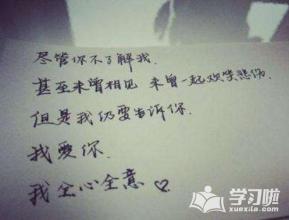 尽管你不了解我.
甚至未曾相见 未曾一起欢笑悲伤.
但是我仍要告诉你.
我爱你.
我全心全意♡
学习啦
www.xuexila.com